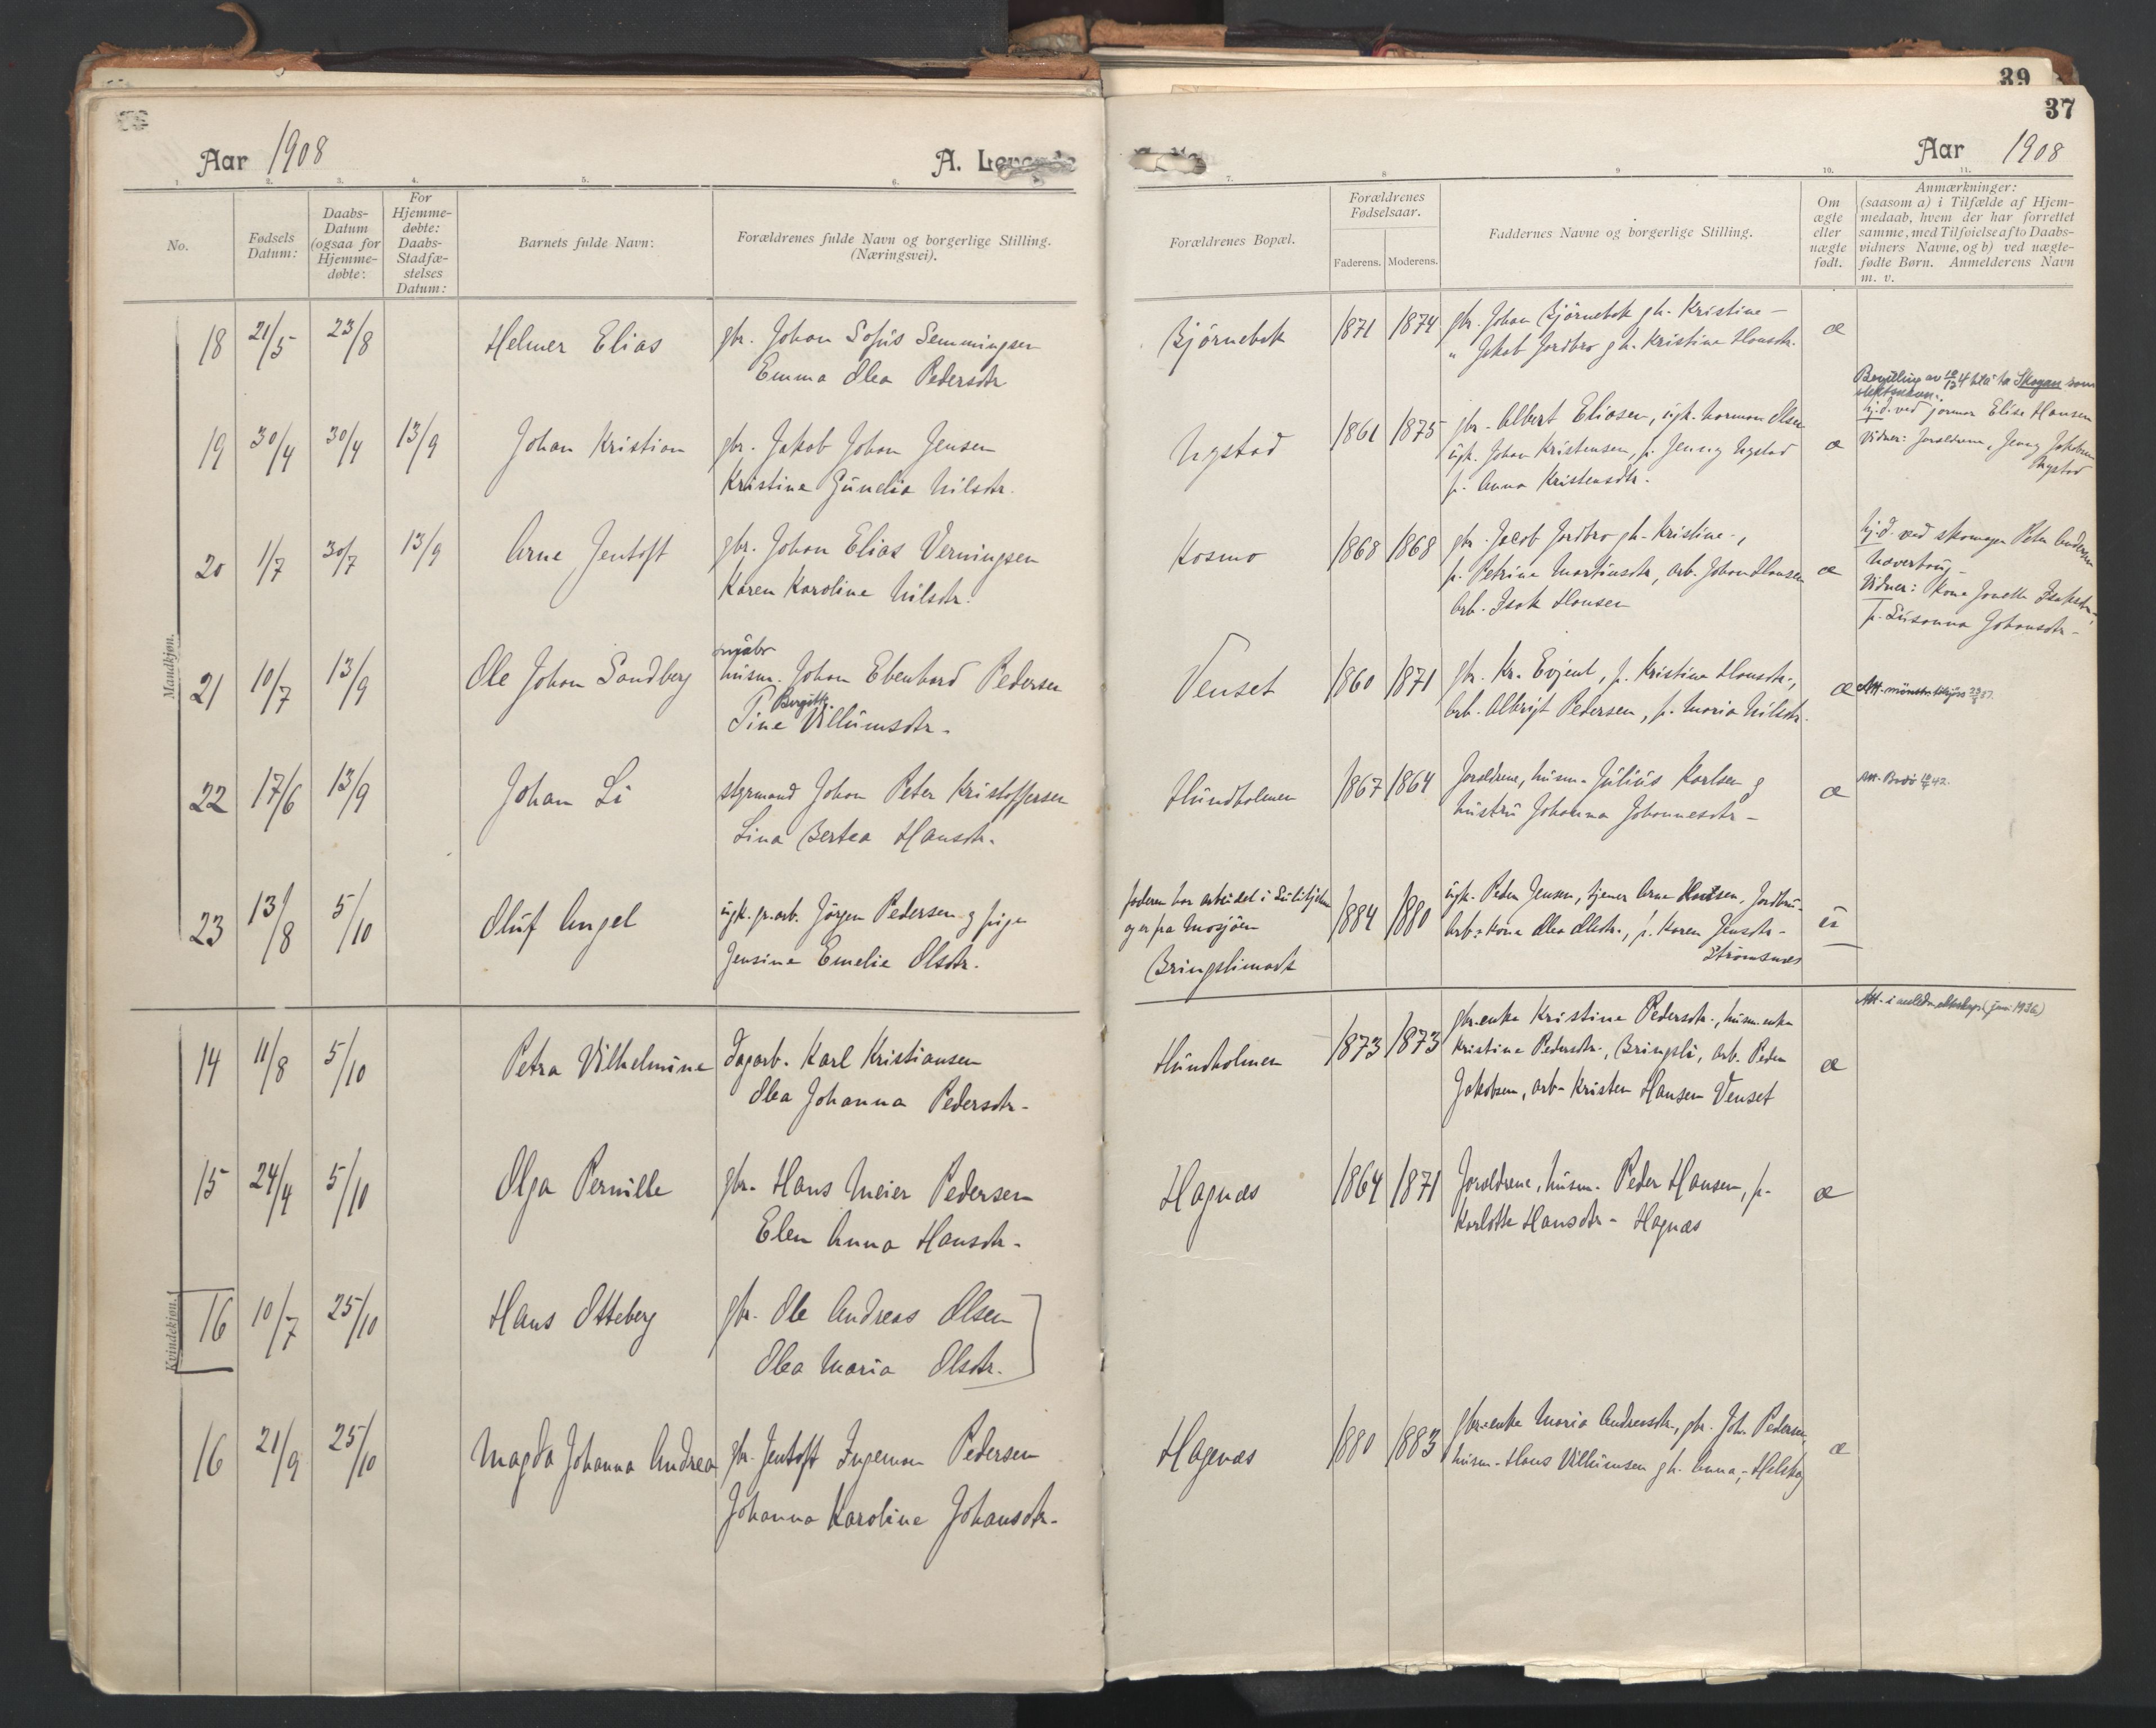 39
37
Aar 1908
A. Levende
Aar 1908
1. 2. 3. 4. 5. 6. 7. 8 9 10. 11.
No.
Fødsels
Datum:
Daabs-
Datum
(ogsaa for
Hjemme-
døbte:
For
Hjemme-
døbte:
Daabs-
Stadfæ-
stelses
Datum:
Barnets fulde Navn:
Forældrenes fulde Navn og borgerlige Stilling.
(Næringsvei).
Forældrenes Bopæl.
Forældrenes
Fødselsaar.
Faderens. Moderens.
Faddernes Navne og borgerlige Stilling.
Om
ægte
eller
uægte
født.
Anmærkninger:
(saasom a) i Tilfælde af Hjem-
medaab, hvem der har forrettet
samme, med Tilføielse af to Daabs-
vidners Navne, og b) ved uægte-
fødte Børn. Anmelderens Navn
m. v.
Mandkjøn.
18 21/5 23/8 Helmer Elias gbr. Johan Sofus Semmingsen
Emma Olea Pedersdtr
Bjørnebak 1871 1874 gbr. Johan Bjørnebak gh. Kristine -
" Jakob Jordbro gh. Kristine Hansdtr. æ
19 30/4 30/4 13/9 Johan Kristian gbr. Jakob Johan Jensen
Kristine Gunelia Nilsdtr.
Nystad 1861 1875 gbr. Albert Eliasen, ugk. Norman Olsen
ugk. Johan Kristensen, p. Jenny Nystad
p. Anna Kristensdtr. æ
Bevilling av 10/12 41 til å ta Skogan som
slektsnavn.
hj.d. ved jormor Elise Hansen
Vidner: Foreldrene, Jenny Jakobsen
Nystad
20 1/7 30/7 13/9 Arne Jentoft gbr. Johan Elias Verningsen
Karen Karoline Nilsdtr.
Kosmo 1868 1868 gbr. Jacob Jordbro gh. Kristine.,
p. Petrine Martinsdtr, arb. Johan Hansen
Arb. Isak Hansen æ
hj.d. ved skomager Peter Andersen
Vidner: Kona Jonette Isaksdtr.,
p. Susanna Johansdtr -
21 10/7 13/9 Ole Johan Sandberg
husm. Johan Ebenhard Pedersen
Birgitte
Tine Villumsdtr.
Venset 1860 1871 gbr. Kr. Evjent, p. Kristine Hansdtr.,
Arb. Albrigt Pedersen, p. Maria Nilsdtr. æ
22 17/6 13/9 Johan Li styrmand Johan Peter Kristoffersen
Lina Bertea Hansdtr.
Hundholmen 1867 1864 Foreldrene, husm. Julius Karlsen og
hustru Johanna Johannesdtr - æ
Att. Bodø 42.
23 13/8 5/10 Oluf Angel ugk. gr.arb. Jørgen Pedersen og pige
Jensine Emelie Olsdtr.
faderen har arbeidet i Sulitjelma
og er fra Mosjøen
Bringslimark 1884 1880 ugk. Peder Jensen, tjener Arne Knutsen, Jordbru.
Arb. Kone Olea Olsdtr., p. Karen Jensdtr -
Strømsnes
u
Kvindekjøn.
14 11/8 5/10 Petra Vilhelmine dagarb. Karl Kristiansen
Olea Johanna Pedersdtr.
Hundholmen 1873 1873 gbr.enke Kristine Pedersdtr., husm.enke
Kristine Pedersdtr., Bringsli, arb. Peder
Jakobsen, arb. Kristen Hansen Venset æ
15 24/4 5/10 Olga Pernille gbr. Hans Meier Pedersen
Elen Anna Hansdtr.
Hagnæs 1864 1871 Foreldrene, husm. Peder Hansen, p.
Karlotte Hansdtr - Hagnæs æ
16 10/7 25/10 Hans Otteberg gbr. Ole Andreas Olsen
Olea Maria Olsdtr.
16 21/9 25/10 Magda Johanna Andrea gbr. Jentoft Ingeman Pedersen
Johanna Karoline Johansdtr.
Hagenæs 1880 1883 gbr.enke Maria Andreasdtr., gbr. Joh. Pedersen,
husm. Hans Villumsen gh. Anna, - Helskog æ